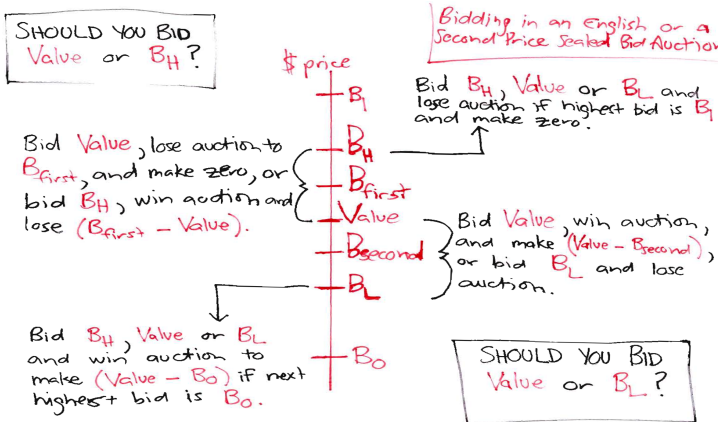 SHOULD YOU BID
Value or B_H ?
Bidding in an English or a
Second Price Sealed Bid Auction
$ price
B_1
Bid B_H, Value or B_L and
lose auction if highest bid is B_1
and make zero.
Bid Value, lose auction to
B_first, and make zero, or
bid B_H, win auction and
lose (B_first - Value).
B_H
B_first
Value
B_second
B_L
B_0
Bid Value, win auction,
and make (Value - B_second),
or bid B_L and lose
auction.
Bid B_H, Value or B_L
and win auction to
make (Value - B_0) if next
highest bid is B_0.
SHOULD YOU BID
Value or B_L ?